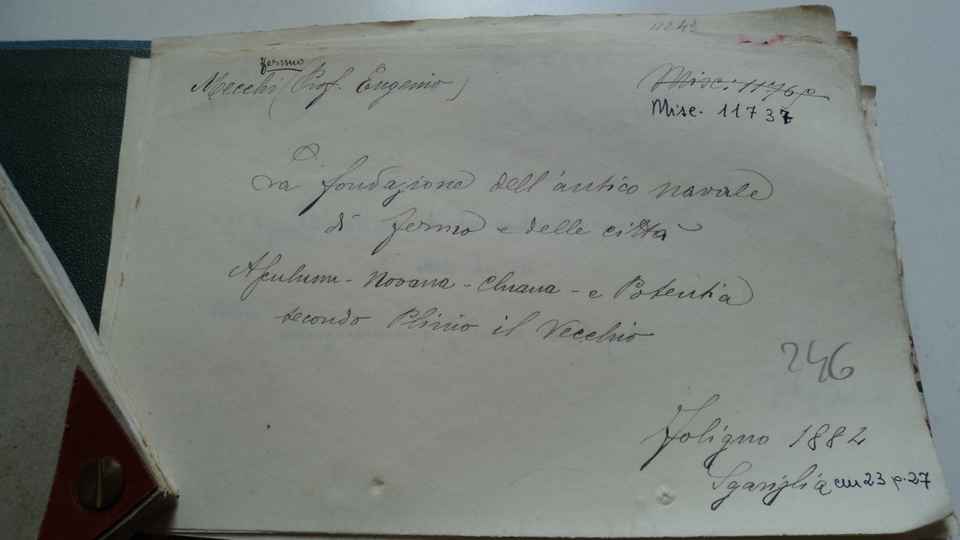 11243
fermo
Mecchi (Prof. Eugenio)
Misc. 1176 p
Misc. 11737
La fondazione dell'antico navale
di fermo e delle città
Asculum - Novana - Cluana - e Potentia
secondo Plinio il Vecchio
246
Foligno 1882
Sgariglia cm 23 p. 27